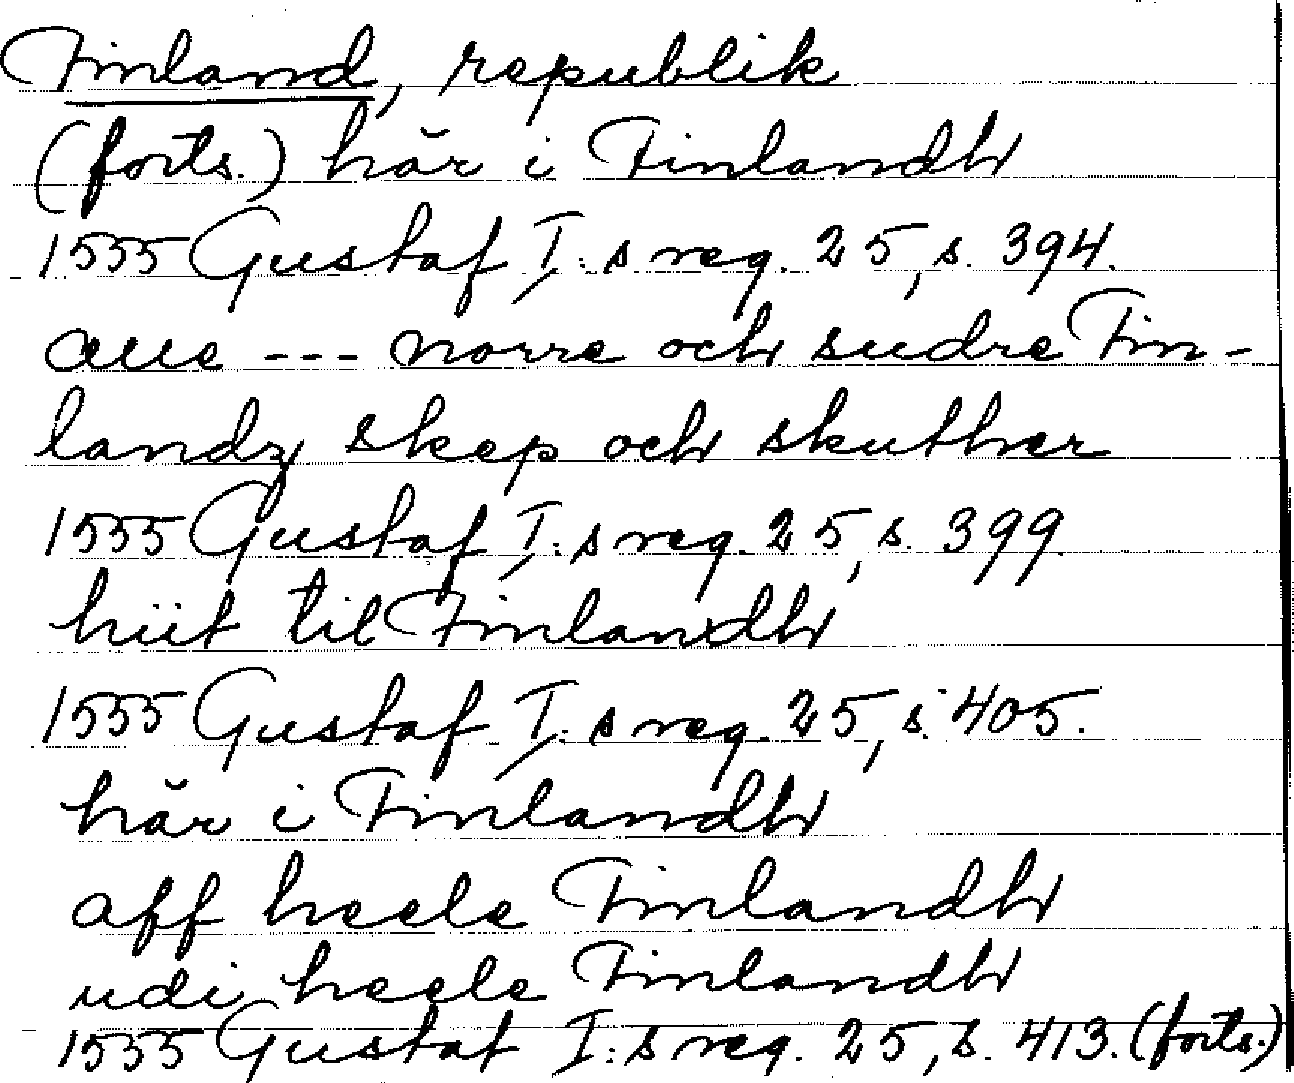 Finland, republik
(forts.) här i Finlandh
1555 Gustaf I:s reg. 25, s. 394.
alle --- norre och sudre Fin-
landz skep och skuther
1555 Gustaf I:s reg. 25, s. 399
hiit til Finlandh
1555 Gustaf I:s reg. 25, s. 405.
här i Finlandh
aff heele Finlandh
udi heele Finlandh
1555 Gustaf I:s reg. 25, s. 413. (forts.)